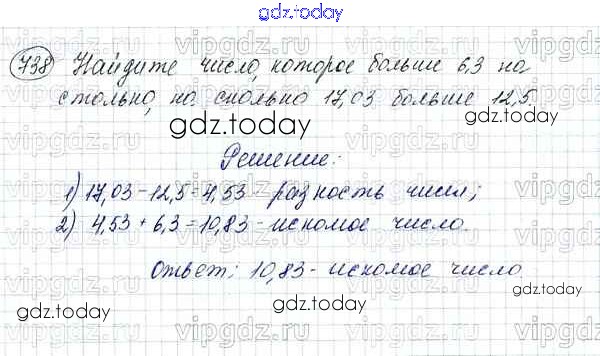 gdz.today
738 Найдите число, которое больше 6,3 на
столько, на сколько 17,03 больше 12,5.
gdz.today
gdz.today
Решение:
1) 17,03 - 12,5 = 4,53 - разность чисел;
2) 4,53 + 6,3 = 10,83 - искомое число.
Ответ: 10,83 - искомое число
gdz.today
gdz.today
vipgdz.ru
vipgdz.ru
vipgdz.ru